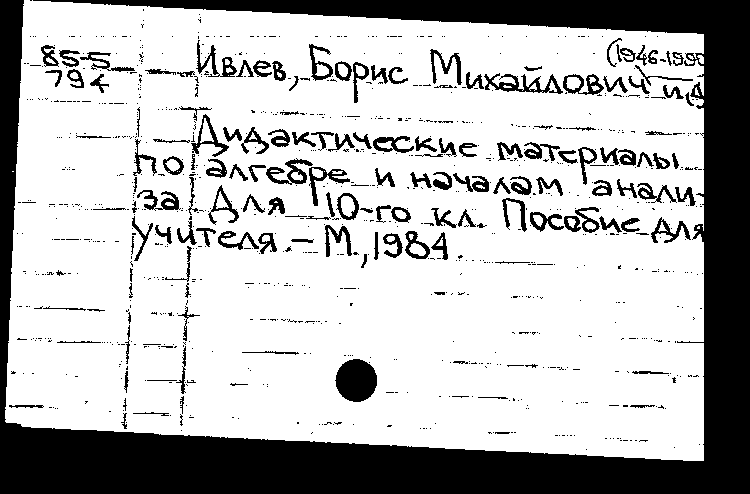 (1946-1990
85-5 Ивлев, Борис Михайлович и д
794
Дидактические материалы
по алгебре и началам анали-
за для 10-го кл. Пособие для
учителя. - М., 1984.